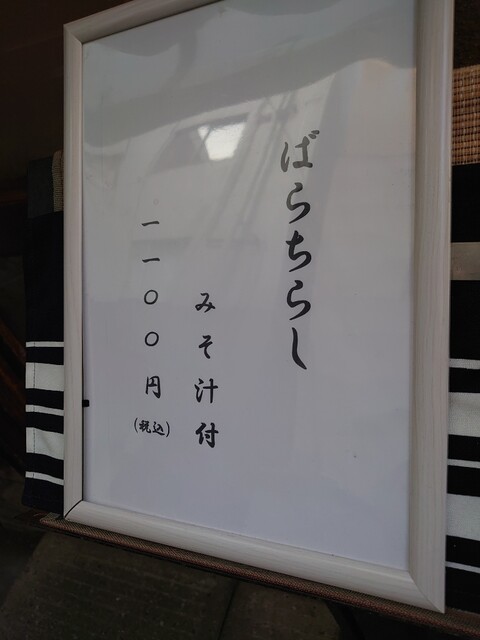 ばらちらし
みそ汁付
一一〇〇円
(税込)